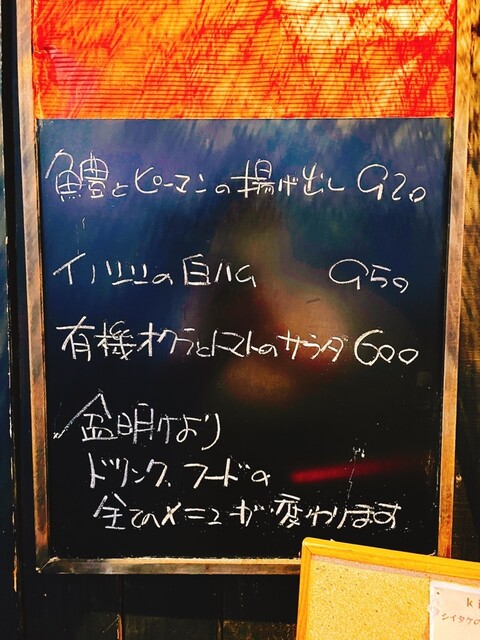 鱧とピーマンの揚げ出し 920
イノシシの白ハム 950
有機オクラとトマトのサラダ 600
盆明けより
ドリンク、フードの
全てのメニューが変わります
シイタケの